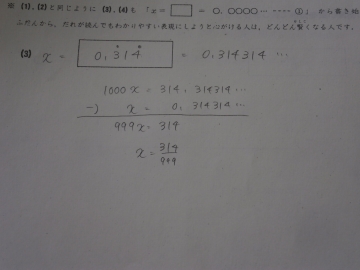 ※ (1),(2)と同じように (3),(4)も 「x = □ = 0.○○○○… ---- ①」から書き始
ふだんから、だれが読んでもわかりやすい表現にしようと心がける人は、どんどん賢くなるんです。
(3) x = 0.3̇14̇ = 0.314314…
1000x = 314.314314…
−) x = 0.314314…
999x = 314
x = 314/999